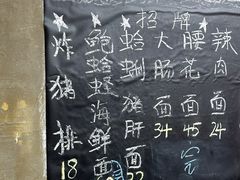 招牌
炸猪排 18
鲍蛤蟶海鲜面
蛤蜊猪肝面 22
大肠面 34
腰花面 45 完
辣肉面 24